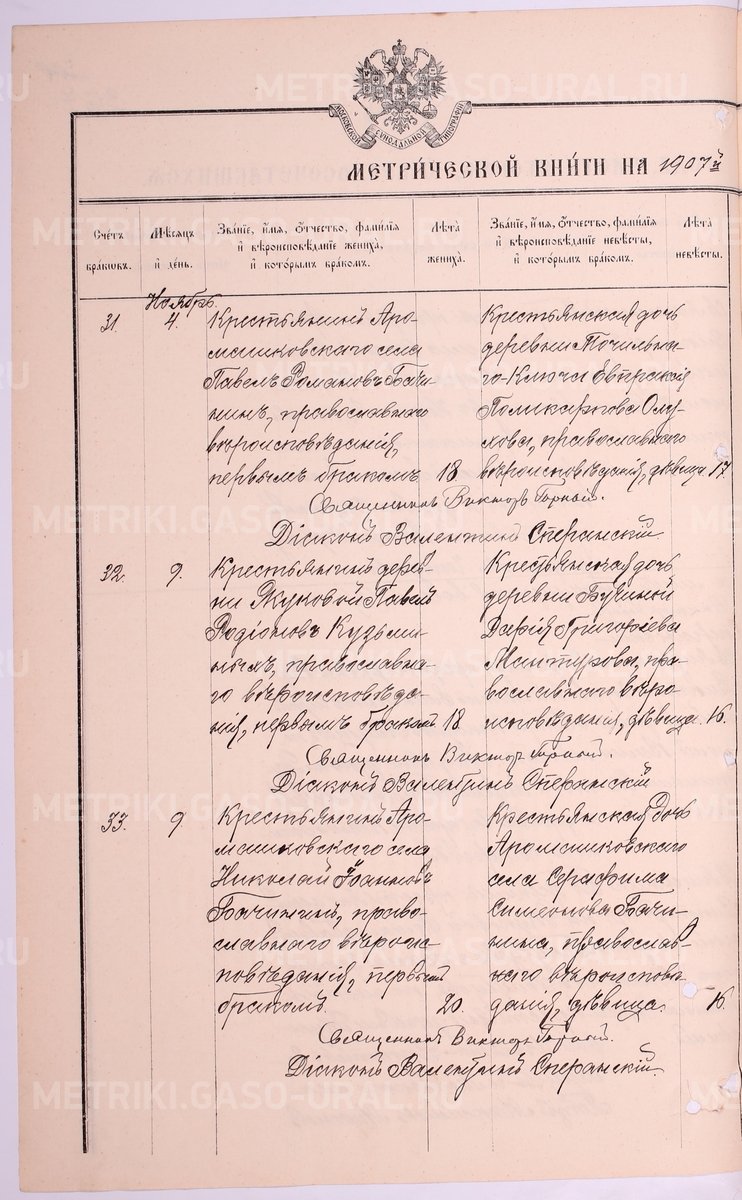 МОСКОВСКОЙ СѴНОДАЛЬНОЙ ТИПОГРАФІИ
МЕТРИ́ЧЕСКОЙ КНИ́ГИ НА 1907й
Сче́тъ бра́ковъ.
Мѣ́сяцъ и де́нь.
Зва́ніе, и́мя, о́тчество, фами́лія и вѣроисповѣ́даніе жениха̀, и кото́рымъ бра́комъ.
Лѣ̑та жениха̀.
Зва́ніе, и́мя, о́тчество, фами́лія и вѣроисповѣ́даніе невѣ́сты, и кото́рымъ бра́комъ.
Лѣ̑та невѣ́сты.
Ноябрь.
31.
4.
Крестьянинъ Аро-
машковскаго села
Павелъ Романовъ Бачи-
нинъ, православнаго
вѣроисповѣданія,
первымъ бракомъ
18.
Крестьянская дочь
деревни Точильна-
го-Ключа Евпраксія
Поликарпова
православнаго
вѣроисповѣданія, дѣвица
17.
Священникъ Викторъ Горный.
Діаконъ Валентинъ Сперанскій.
32.
9.
Крестьянинъ дерев-
ни Жуковой Павелъ
Родіоновъ Кузьми-
ныхъ, православна-
го вѣроисповѣда-
нія, первымъ бракомъ
18.
Крестьянская дочь
деревни Бучиной
Дарія Григоріева
Мантурова, пра-
вославнаго вѣро-
исповѣданія, дѣвица.
16.
Священникъ Викторъ Горный.
Діаконъ Валентинъ Сперанскій
33.
9
Крестьянинъ Аро-
машковскаго села
Николай Іоанновъ
Бачининъ, право-
славнаго вѣроис-
повѣданія, первымъ
бракомъ.
20.
Крестьянская дочь
Аромашковскаго
села Серафима
Симеонова Бачи-
нина, православ-
наго вѣроисповѣ-
данія, дѣвица.
16.
Священникъ Викторъ Горный.
Діаконъ Валентинъ Сперанскій.
METRIKI.GASO-URAL.RU